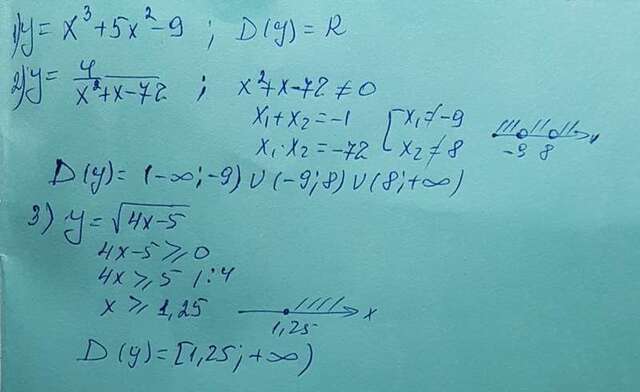 1) y = x³ + 5x² - 9 ; D(y) = R
2) y = 4/(x² + x - 72) ; x² + x - 72 ≠ 0
x₁ + x₂ = -1 [x₁ ≠ -9
x₁ · x₂ = -72 [x₂ ≠ 8
-9 8 x
D(y) = (-∞; -9) ∪ (-9; 8) ∪ (8; +∞)
3) y = √(4x-5)
4x - 5 ⩾ 0
4x ⩾ 5 | : 4
x ⩾ 1,25
1,25 x
D(y) = [1,25; +∞)